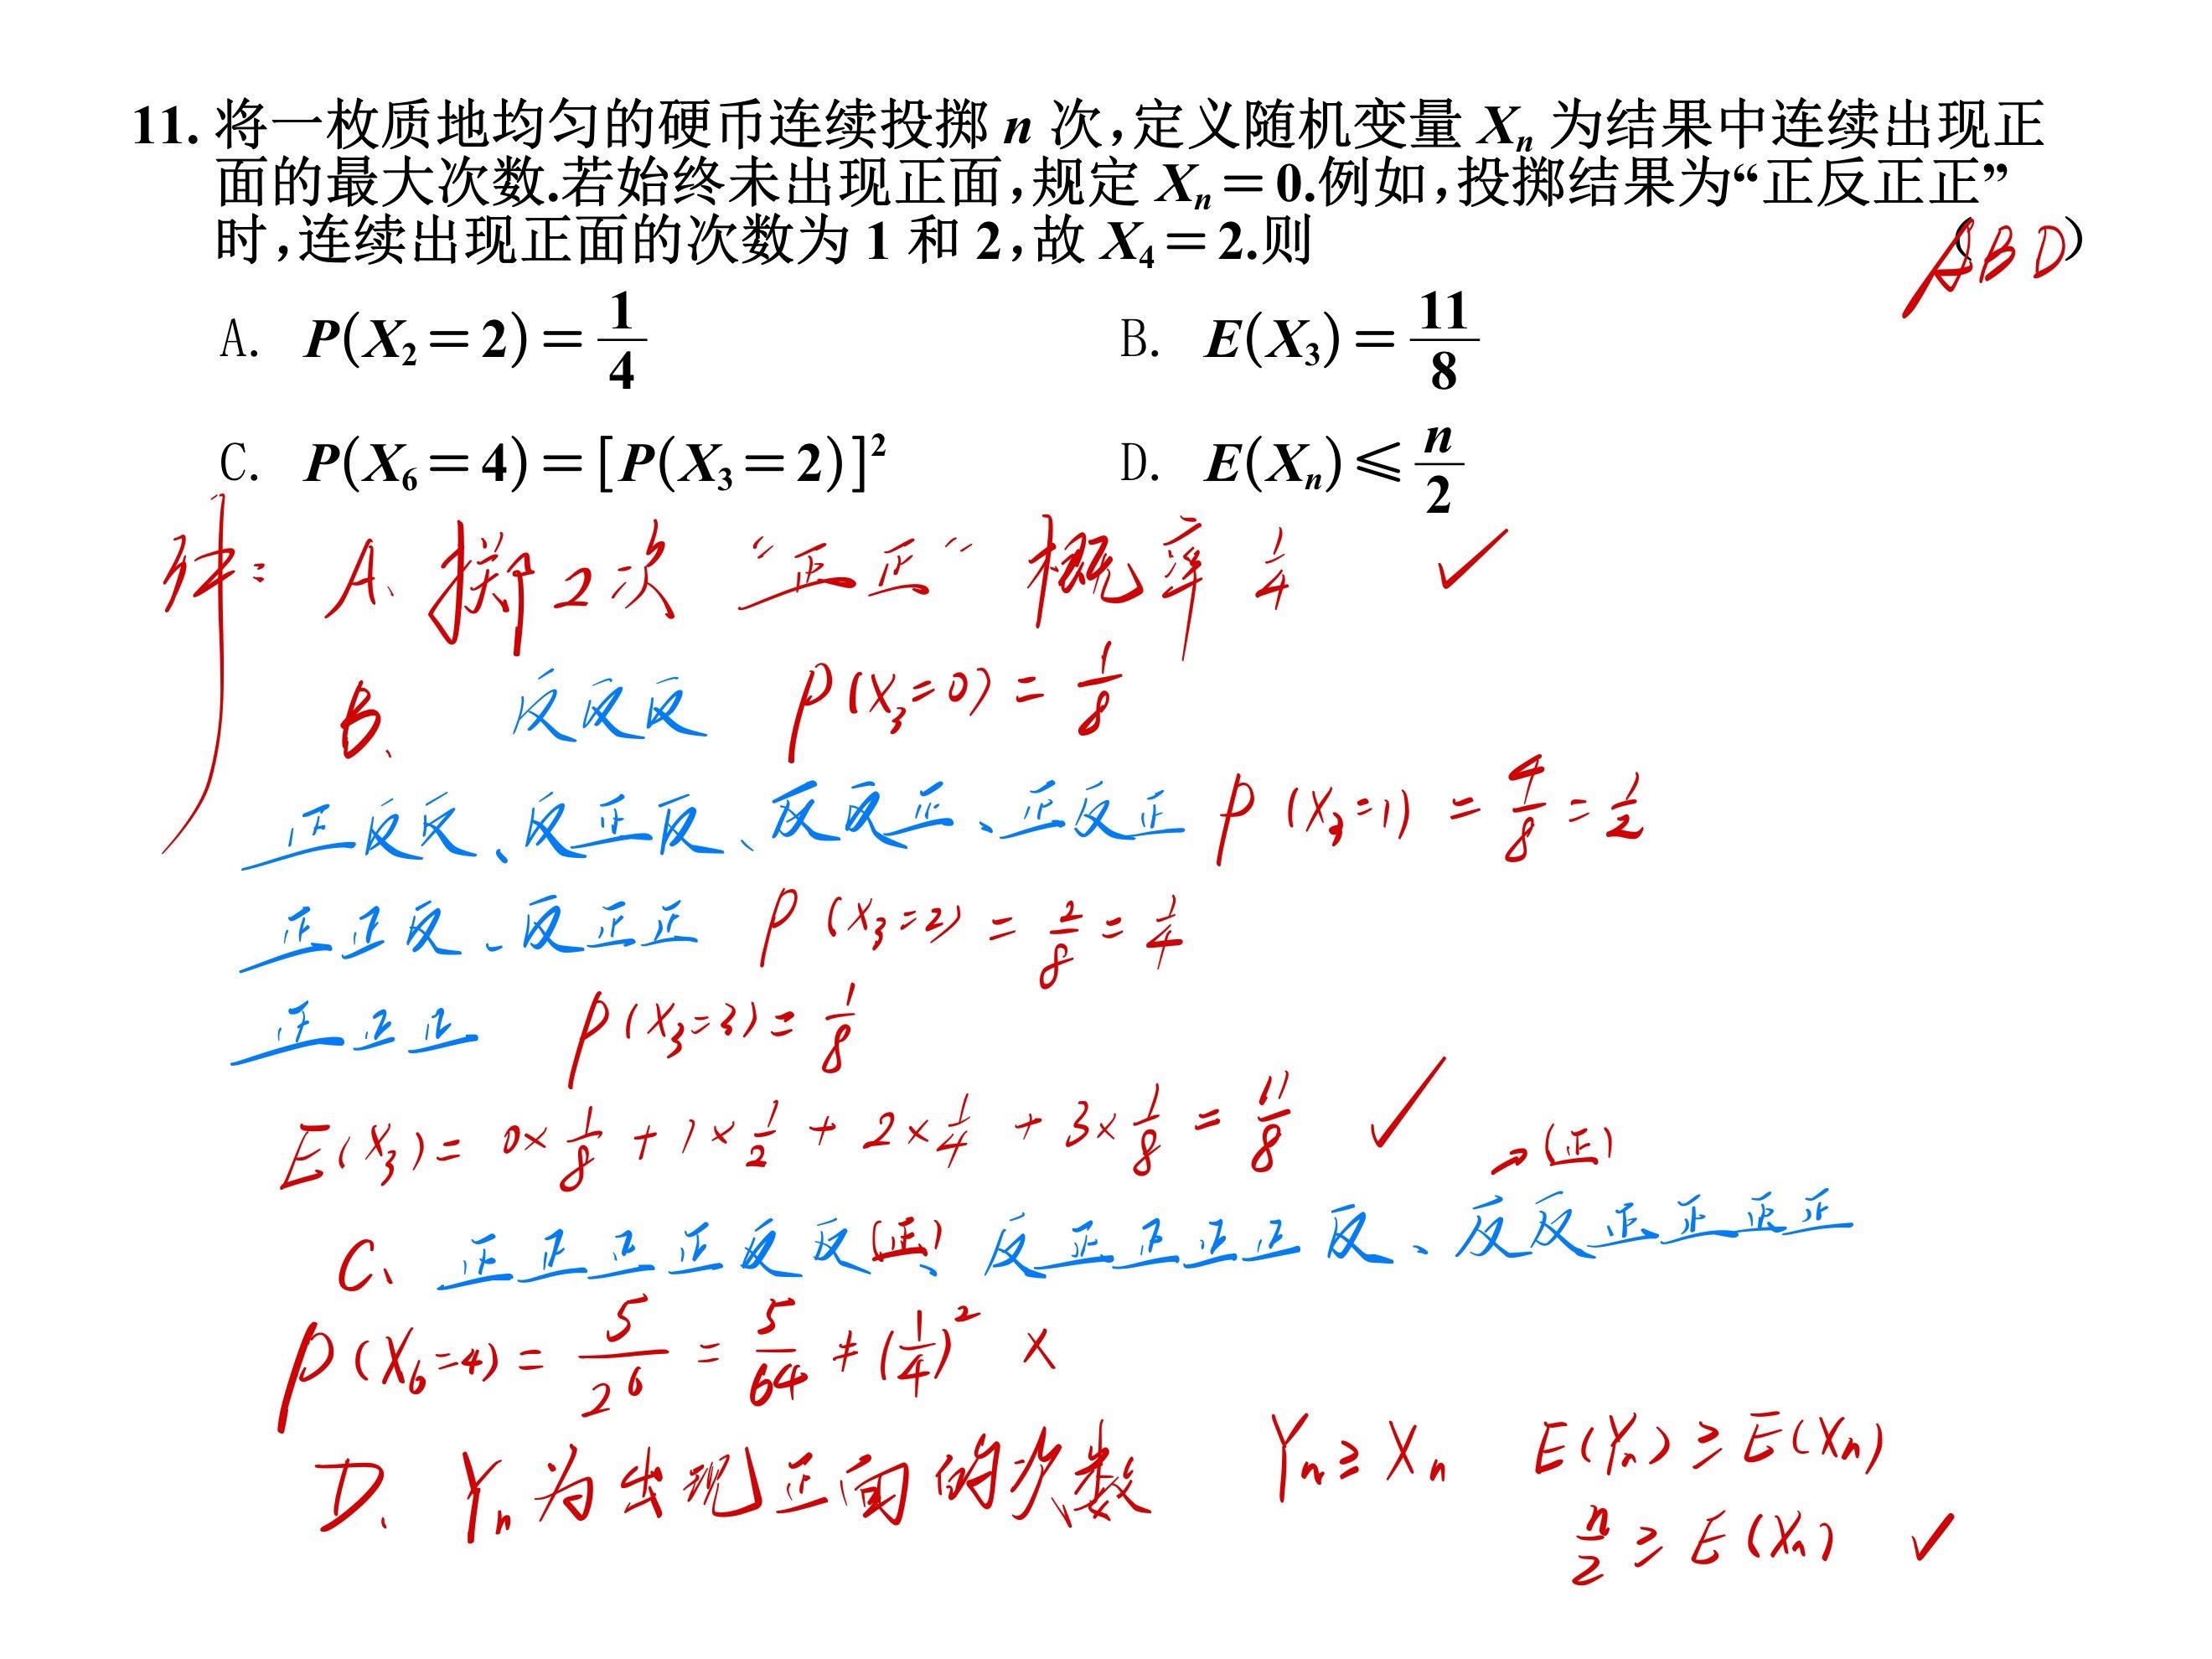 11. 将一枚质地均匀的硬币连续投掷 n 次,定义随机变量 Xₙ 为结果中连续出现正
面的最大次数.若始终未出现正面,规定 Xₙ=0.例如,投掷结果为“正反正正”
时,连续出现正面的次数为 1 和 2,故 X₄=2.则 ( ABD )
A. P(X₂=2)=1/4 B. E(X₃)=11/8
C. P(X₆=4)=[P(X₃=2)]² D. E(Xₙ)≤n/2
解: A、掷2次 “正正” 概率 1/4 ✓
B、 反反反 P(X₃=0)=1/8
正反反、反正反、反反正、正反正 P(X₃=1)=4/8=1/2
正正反、反正正 P(X₃=2)=2/8=1/4
正正正 P(X₃=3)=1/8
E(X₃)=0×1/8+1×1/2+2×1/4+3×1/8=11/8 ✓
→(正)
C、正正正正反反(正)、反正正正正反、反反正正正正
P(X₆=4)=5/2⁶=5/64≠(1/4)² ×
D、Yₙ为出现正面的次数 Yₙ≥Xₙ E(Yₙ)≥E(Xₙ)
n/2≥E(Xₙ) ✓